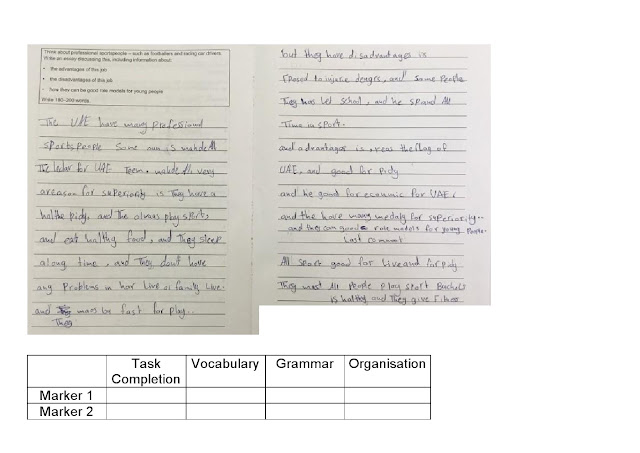 Think about professional sportspeople – such as footballers and racing car drivers.
Write an essay discussing this, including information about:
• the advantages of this job
• the disadvantages of this job
• how they can be good role models for young people
Write 180–200 words.
The UAE have many professional
sports people Some
The for UAE Teem. very
areason for superiority is They have a
halthe pidy, and The play sports,
and eat halthy food, and They sleep
along time, and They don't have
any Problems in har Live or family Live.
and be fast for play..
They
but they have disadvantages is
to and some people
They has school, and he spand All
Time in sport.
and advantages is the flag of
UAE, and good for pidy
and he good for economic for UAE.
and the have many medaly for superiority..
and they can good role models for young People.
Last
All sport good for Live and for pidy
They All People play sport
is halthy and They give
Task Completion Vocabulary Grammar Organisation
Marker 1
Marker 2